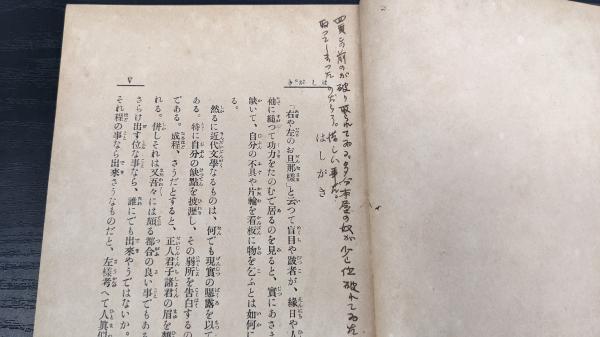 四頁この前のが破り取られてゐる、多分本屋の奴が少し位破れてゐた
取つてしまつたのだらう。惜しい事だ。
はしがき
はしがき
「右や左のお旦那樣」と云つて盲目や跛者が、緣日や人
他に縋つて功力をたのむで居るのを見ると、實にあさ
缺いて、自分の不具や片輪を看板に物を乞ふとは如何に
る。
然るに近代文學なるものは、何でも現實の曝露を以て
ある。特に自分の缺點を披瀝し、その弱所を告白するの
である。成程、さうだとすると、正人君子諸君の眉を
れる。併しそれは又吾々には頗る都合の良い事でもある
さらけ出す位な事なら、誰にでも出來やうではないか。
それ程の事なら出來さうなものだと、左樣考へて人眞似